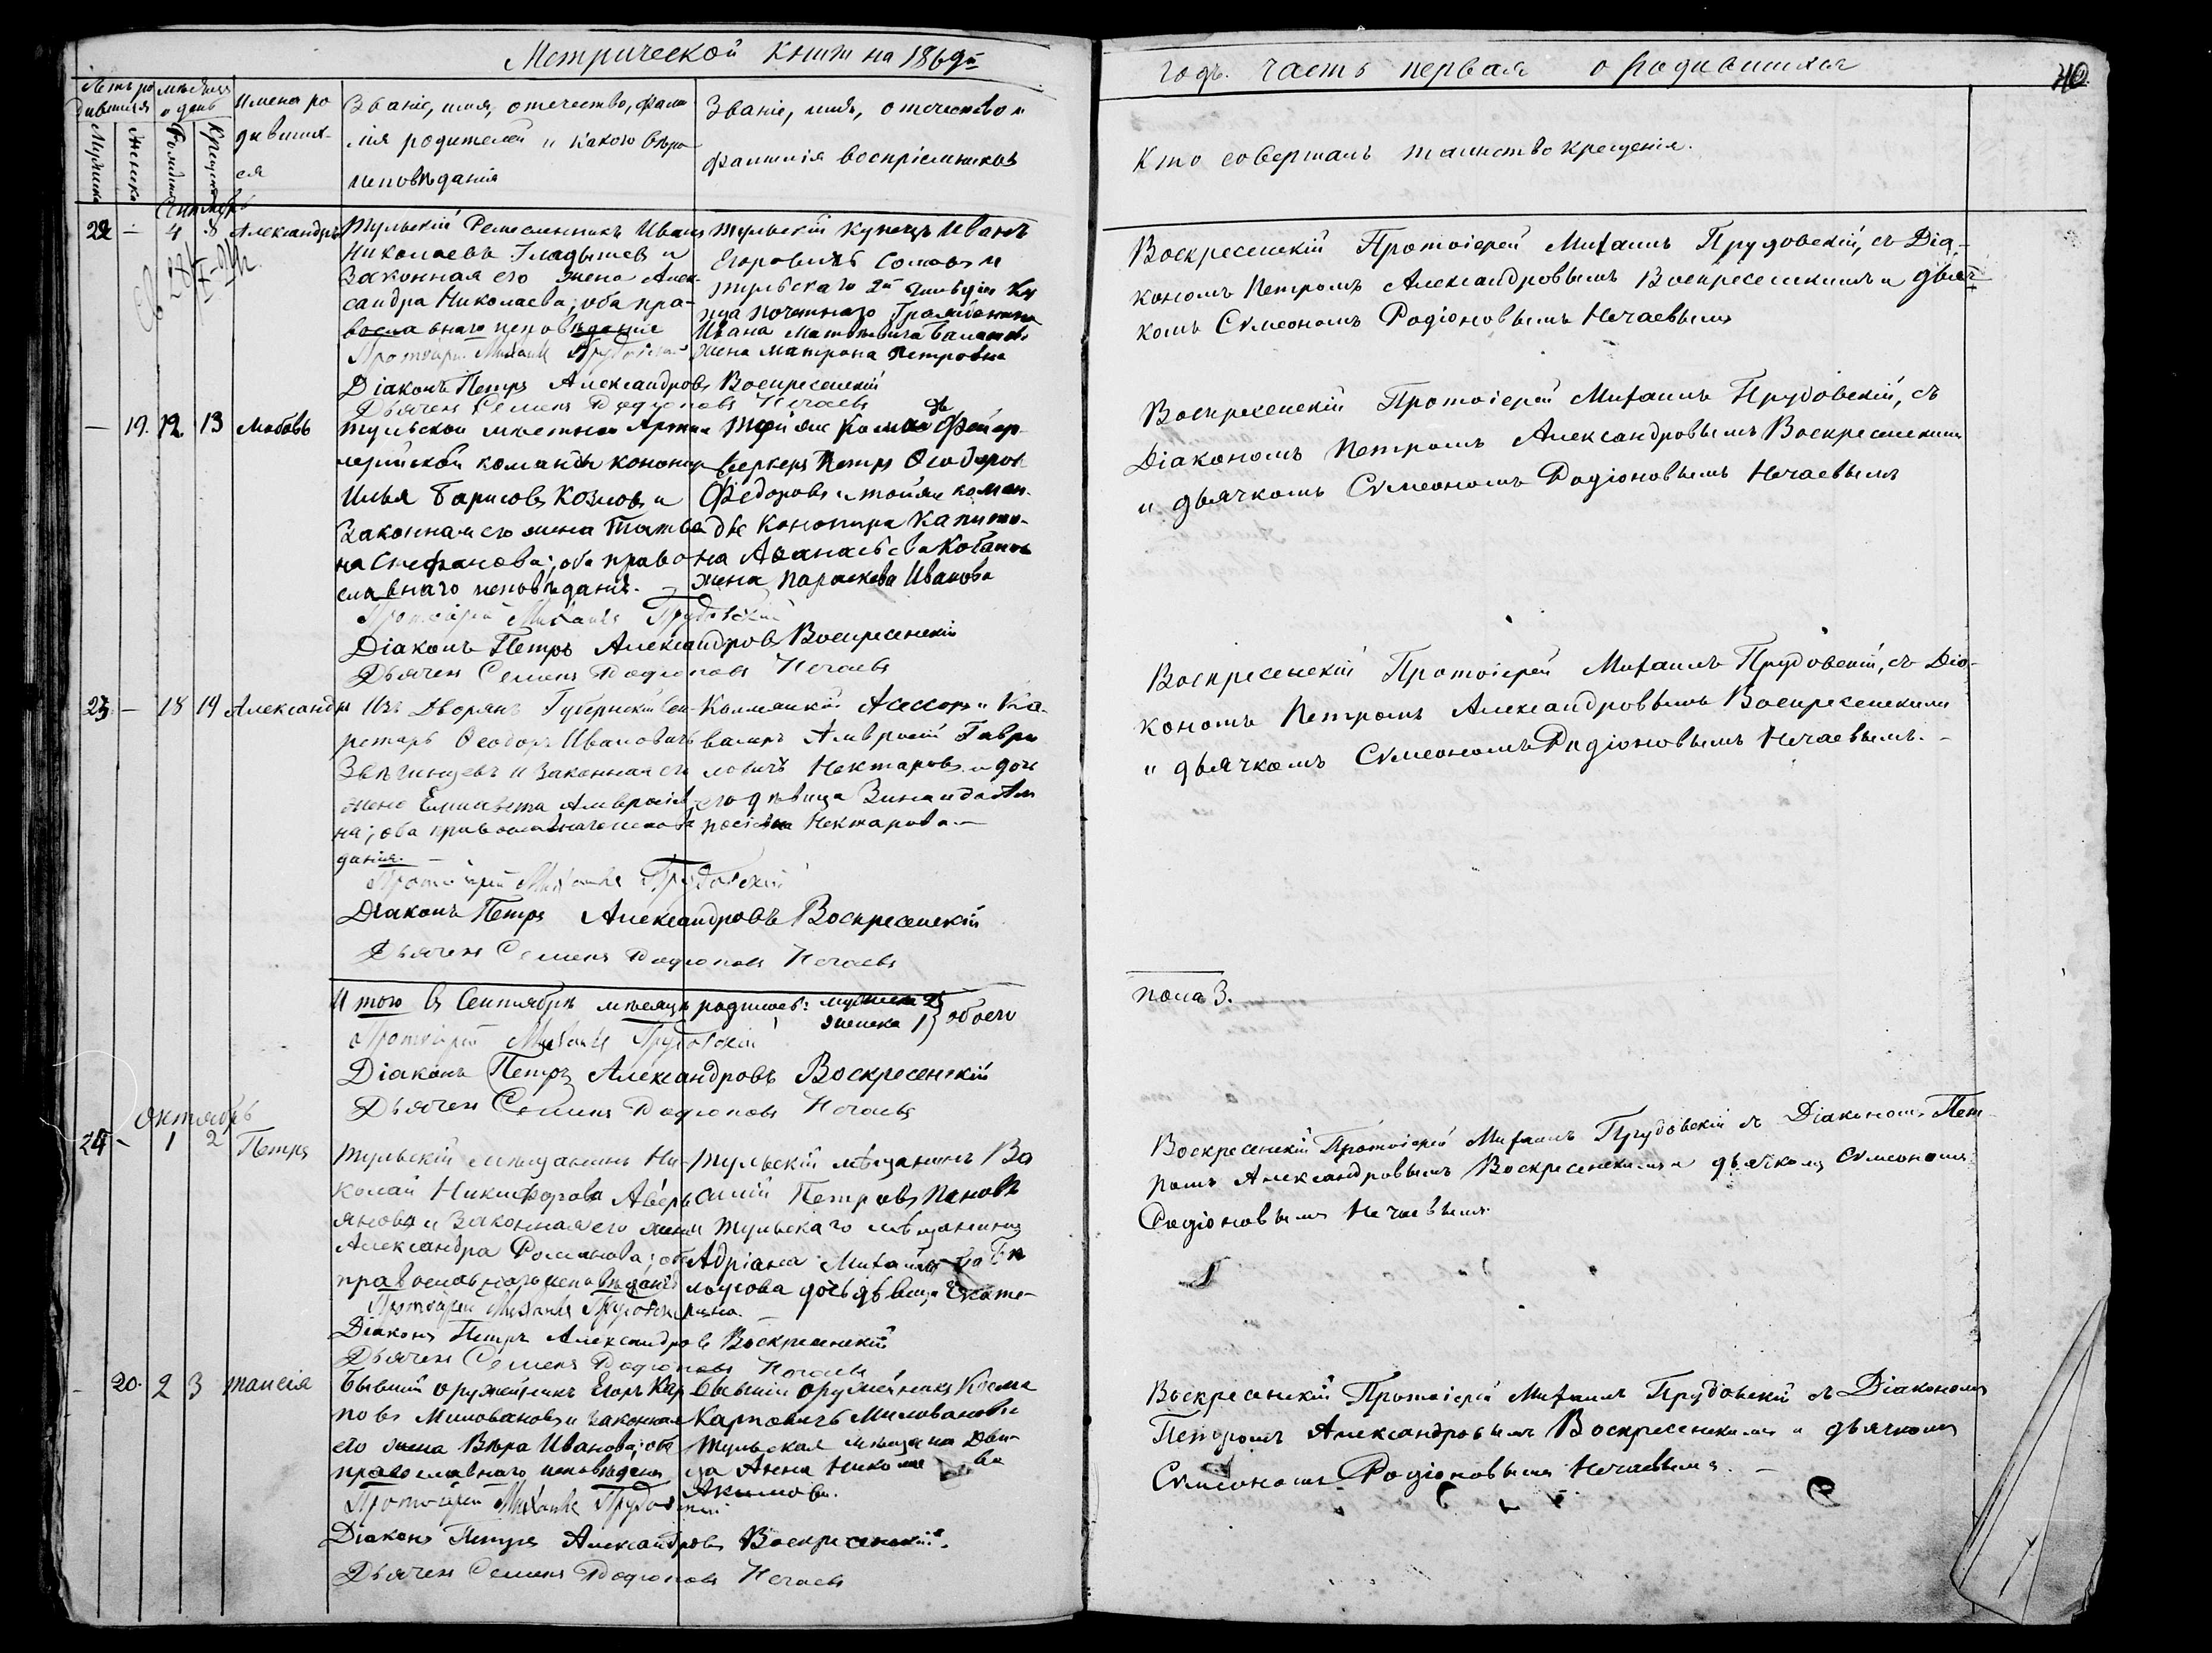 Метрической Книги на 1869й
годъ. Часть первая о родившихся
40
Имена родившихся
Званіе, имя, отечество, фамилія родителей и какого вѣроисповѣданія
Званіе, имя, отечество и фамилія воспріемниковъ
Кто совершалъ таинство крещенія.
22 — 4 8 Александръ
Тульскій Ремесленникъ Иванъ
Николаевъ Гладышев и
Законная его жена Алек-
сандра Николаева; оба пра-
вославнаго исповѣданіе
Протоіерей Михаилъ Прудовскій
Діаконъ Петръ Александровъ Воскресенскій
Дьячекъ Семенъ Родіоновъ Нечаевъ
Тульскій Купецъ Иванъ
Егоровичъ и
Тульскаго 2й гильдіи Ку
пца почетнаго Гражданина
Ивана Матвѣевича
жена Матрона Петровна
Воскресенскій Протоіерей Михаилъ Прудовскій, съ Діа-
кономъ Петромъ Александровымъ Воскресенскимъ и дьяч-
комъ Сѵмеономъ Родіоновымъ Нечаевымъ
— 19. 12. 13 Любовь
Тульской мѣстной Артил
лерійской команды канонир
Илья Борисовъ Козловъ и
Законная его жена Татья
на Стефанова; оба право
славнаго исповѣданія. —
Протоіерей Михаилъ Прудовскій
Діаконъ Петръ Александровъ Воскресенскій
Дьячекъ Семенъ Родіоновъ Нечаевъ
Той же команды Фейер-
веркеръ Петръ Ѳеодоров
Федоровъ и той же коман-
ды Канонира Капито-
на Аѳанасьева
жена Параскева Иванова
Воскресенскій Протоіерей Михаилъ Прудовскій, съ
Діакономъ Петромъ Александровымъ Воскресенскимъ
и дьячкомъ Сѵмеономъ Родіоновымъ Нечаевымъ
23 — 18 19 Александръ
Изъ Дворянъ Губернскій Сек-
ретарь Ѳеодоръ Ивановичъ
Звѣгинцевъ и Законная его
жена Елисавета Амвросіев
на; оба православнаго исповѣ
данія. —
Протоіерей Михаилъ Прудовскій
Діаконъ Петръ Александровъ Воскресенскій
Дьячекъ Семенъ Родіоновъ Нечаевъ
Коллежскій Ассесоръ и Ка-
валеръ Амвросій Гаври
ловичъ Нектаровъ и дочь
его дѣвица Зинаида Ам
росіевна Нектарова —
Воскресенскій Протоіерей Михаилъ Прудовскій, съ Діа-
кономъ Петромъ Александровымъ Воскресенскимъ
и дьячкомъ Сѵмеономъ Родіоновымъ Нечаевымъ. —
Итого въ Сентябрѣ мѣсяцѣ родилось: мужеска 2
женска 1 } обоего
пола 3.
Протоіерей Михаилъ Прудовскій
Діаконъ Петръ Александровъ Воскресенскій
Дьячекъ Семенъ Родіоновъ Нечаевъ
Октябрь
24 - 1 2 Петръ
Тульскій мѣщанинъ Ни-
колай Никифоровъ Аверь
яновъ и Законная его жена
Александра Романова; оба
православнаго исповѣданія
Протоіерей Михаилъ Прудовскій
Діаконъ Петръ Александровъ Воскресенскій
Дьячекъ Семенъ Родіоновъ Нечаевъ
Тульскій мѣщанинъ Ва
силій Петровъ Пановъ
и Тульскаго мѣщанина
Адріана Михайлова Бѣ
лоусова дочь дѣвица Екате-
рина.
Воскресенскій Протоіерей Михаилъ Прудовскій съ Діакономъ Пет-
ромъ Александровымъ Воскресенскимъ и дьячкомъ Сѵмеономъ
Родіоновымъ Нечаевымъ
- 20. 2 3 Таисія
Бывшій оружейникъ Егоръ Кар
повъ Миловановъ и законная
его жена Вѣра Иванова; оба
православнаго исповѣданія
Протоіерей Михаилъ Прудовскій
Діаконъ Петръ Александровъ Воскресенскій.
Дьячекъ Семенъ Родіоновъ Нечаевъ
бывшій оружейникъ Косма
Карповичъ Миловановъ и
Тульская мѣщанка Дѣви-
ца Анна Николаева
Акимова.
Воскресенскій Протоіерей Михаилъ Прудовскій съ Діакономъ
Петромъ Александровымъ Воскресенскимъ и дьячкомъ
Сѵмеономъ Родіоновымъ Нечаевымъ. —